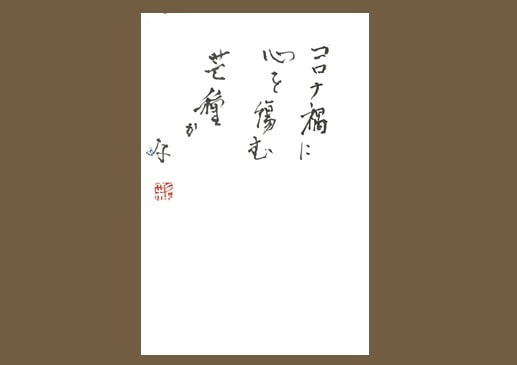 コロナ禍に
心を傷む
芒種か